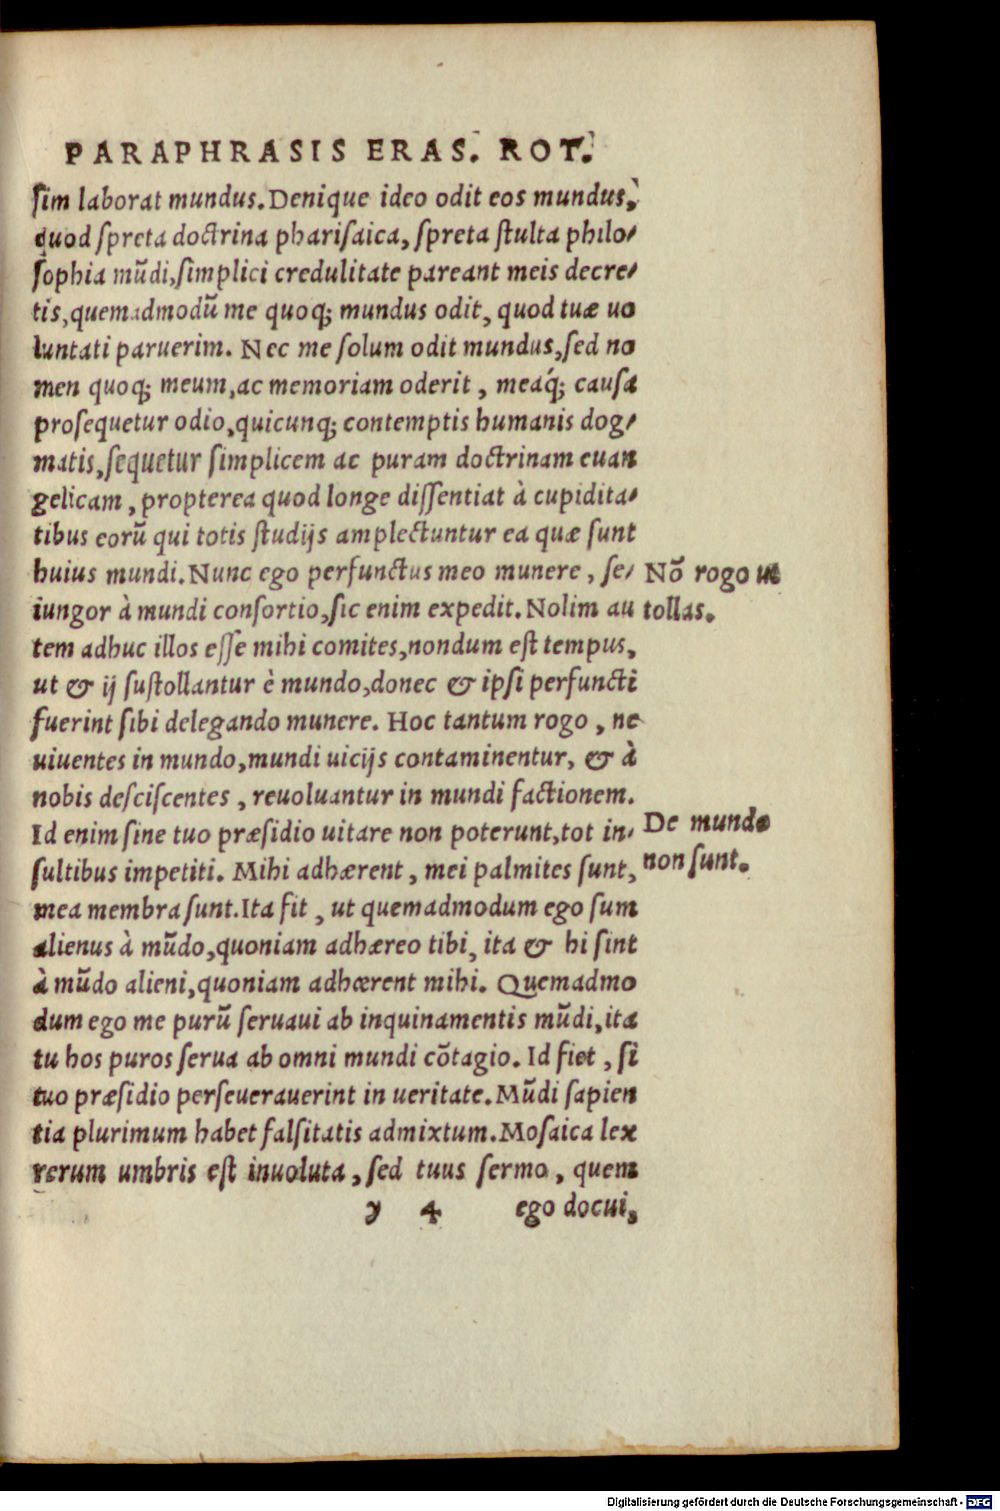 PARAPHRASIS ERAS. ROT.
ſim laborat mundus. Denique ideo odit eos mundus,
quod ſpreta doctrina phariſaica, ſpreta ſtulta philo/
ſophia mūdi, ſimplici credulitate pareant meis decre/
tis, quemadmodū me quoq; mundus odit, quod tuæ uo
luntati paruerim. Nec me ſolum odit mundus, ſed no
men quoq; meum, ac memoriam oderit, meáq; cauſa
proſequetur odio, quicunq; contemptis humanis dog/
matis, ſequetur ſimplicem ac puram doctrinam euan
gelicam, propterea quod longe diſſentiat à cupidita/
tibus eorū qui totis ſtudijs amplectuntur ea quæ ſunt
huius mundi. Nunc ego perfunctus meo munere, ſe/
iungor à mundi conſortio, ſic enim expedit. Nolim au
tem adhuc illos eſſe mihi comites, nondum eſt tempus,
ut & ij ſuſtollantur è mundo, donec & ipſi perfuncti
fuerint ſibi delegando munere. Hoc tantum rogo, ne
uiuentes in mundo, mundi uicijs contaminentur, & à
nobis deſciſcentes, reuoluantur in mundi factionem.
Id enim ſine tuo præſidio uitare non poterunt, tot in/
ſultibus impetiti. Mihi adhærent, mei palmites ſunt,
mea membra ſunt. Ita fit, ut quemadmodum ego ſum
alienus à mūdo, quoniam adhæreo tibi, ita & hi ſint
à mūdo alieni, quoniam adhœrent mihi. Quemadmo
dum ego me purū ſeruaui ab inquinamentis mūdi, ita
tu hos puros ſerua ab omni mundi cōtagio. Id fiet, ſi
tuo præſidio perſeuerauerint in ueritate. Mūdi ſapien
tia plurimum habet falſitatis admixtum. Moſaica lex
rerum umbris eſt inuoluta, ſed tuus ſermo, quem
y 4 ego docui,
Nō rogo ut
tollas.
De mundo
non ſunt.
Digitalisierung gefördert durch die Deutsche Forschungsgemeinschaft - DFG